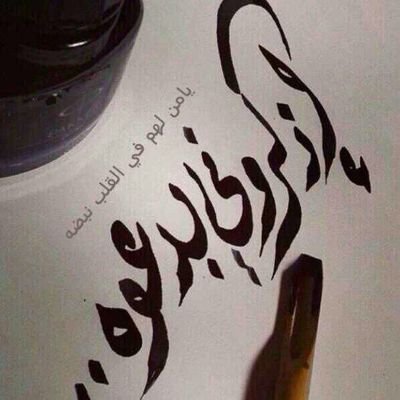 يامن لهم في القلب نبضه
إذكروني بدعوه